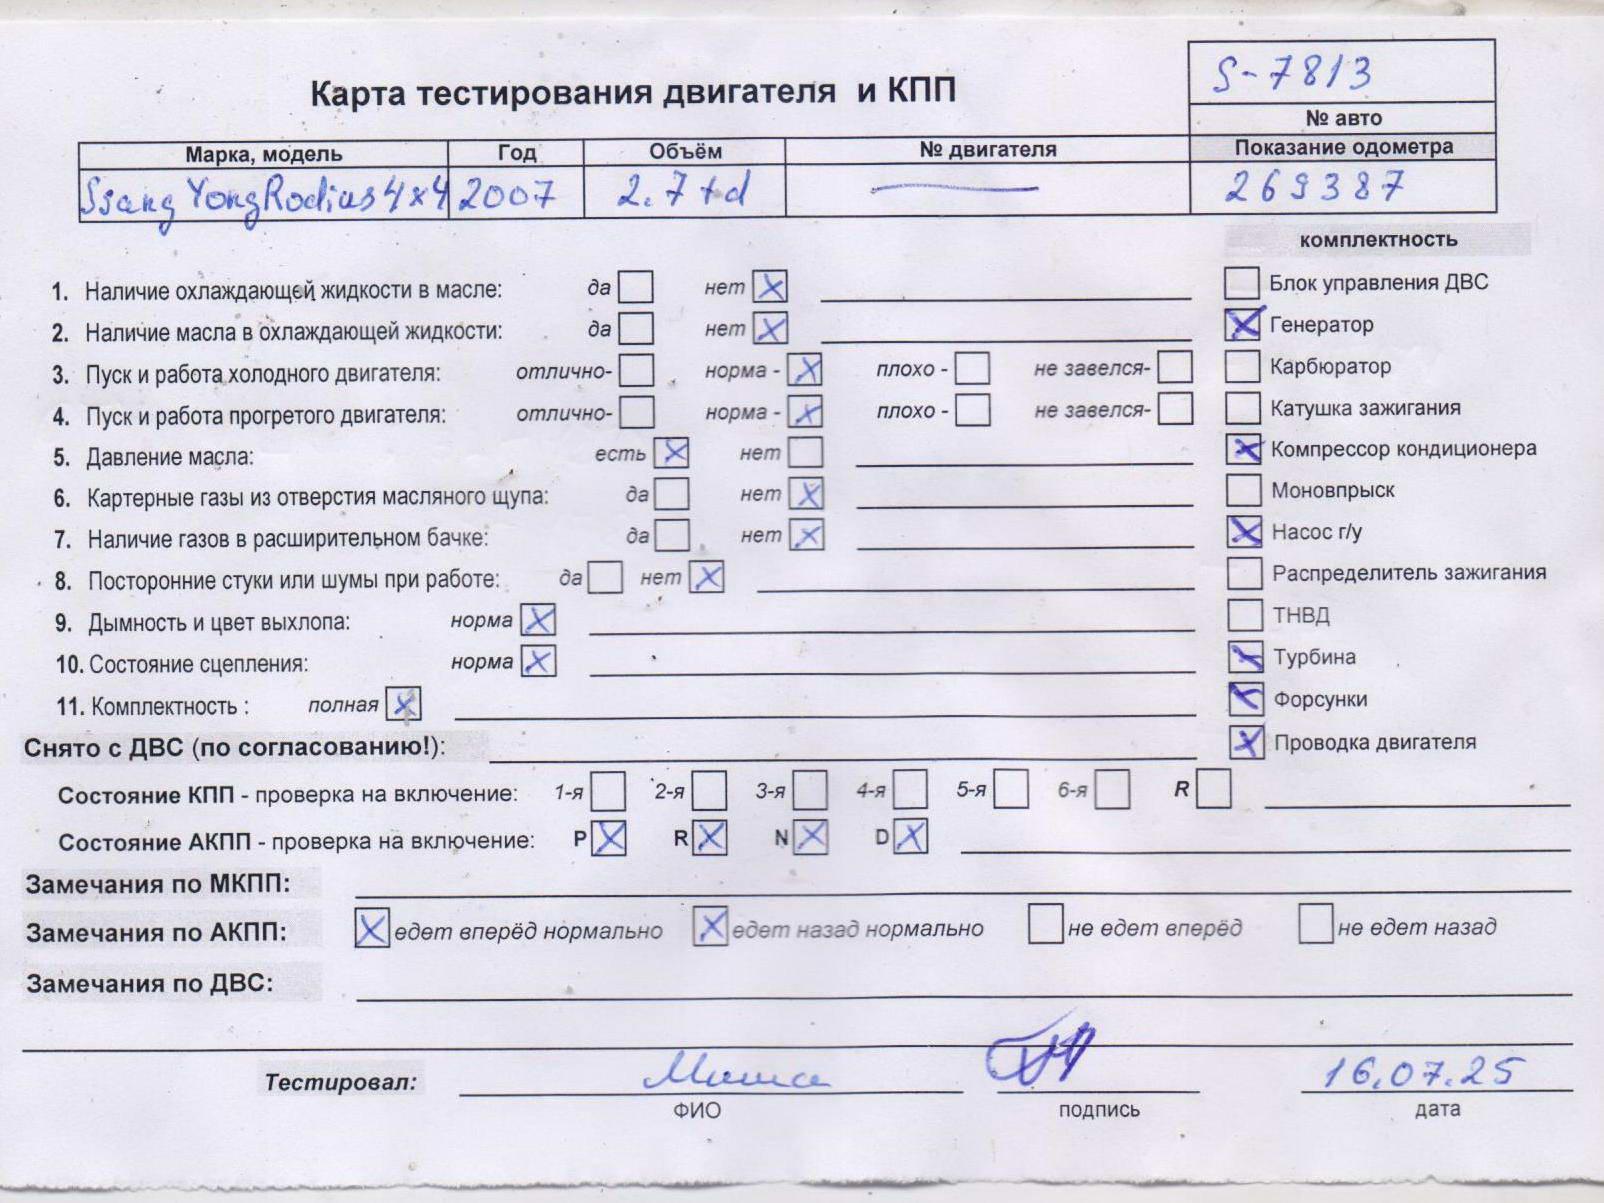 S-7813
Карта тестирования двигателя и КПП
№ авто
Марка, модель Год Объём № двигателя Показание одометра
Ssang Yong Rodius 4x4 2007 2.7td 269387
комплектность
1. Наличие охлаждающей жидкости в масле: да нет Блок управления ДВС
2. Наличие масла в охлаждающей жидкости: да нет Генератор
3. Пуск и работа холодного двигателя: отлично- норма - плохо - не завелся- Карбюратор
4. Пуск и работа прогретого двигателя: отлично- норма - плохо - не завелся- Катушка зажигания
5. Давление масла: есть нет Компрессор кондиционера
6. Картерные газы из отверстия масляного щупа: да нет Моновпрыск
7. Наличие газов в расширительном бачке: да нет Насос г/у
8. Посторонние стуки или шумы при работе: да нет Распределитель зажигания
9. Дымность и цвет выхлопа: норма ТНВД
10. Состояние сцепления: норма Турбина
11. Комплектность : полная Форсунки
Снято с ДВС (по согласованию!): Проводка двигателя
Состояние КПП - проверка на включение: 1-я 2-я 3-я 4-я 5-я 6-я R
Состояние АКПП - проверка на включение: P R N D
Замечания по МКПП:
Замечания по АКПП: едет вперёд нормально едет назад нормально не едет вперёд не едет назад
Замечания по ДВС:
Тестировал: Миша 16.07.25
ФИО подпись дата